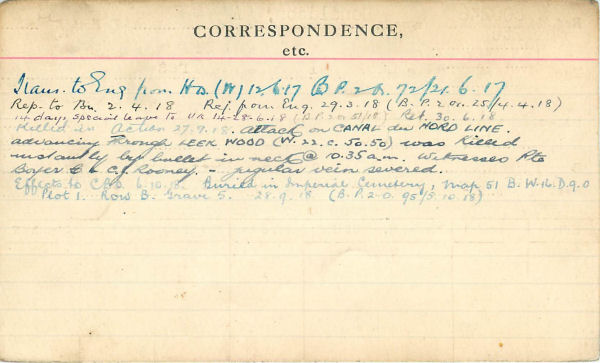 CORRESPONDENCE,
etc.
Trans. to Eng from Hd. (W) 12.6.17 B.P.2.O. 72/21.6.17
Rep. to Bn. 2.4.18 Rej. from Eng. 29.3.18 (B.P.2.On.25/4.4.18)
14 days special leave to UK 14-28-6.18 (B.P.2.O.51/18) Ret. 30.6.18
Killed in Action 27.9.18. attack on CANAL du NORD LINE.
advancing through LEEK WOOD (W.22.c.50.50) was killed
instantly by bullet in neck @ 10.35 a.m. Witnesses Pte
Boyer & C.J. Rooney. – jugular vein severed.
Effects to 6.10.18. Buried in Imperial Cemetery, Map 51 B.W.16.D.9.0
Plot 1. Row B. Grave 5. 28.9.18 (B.P.2.O. 95/5.10.18)